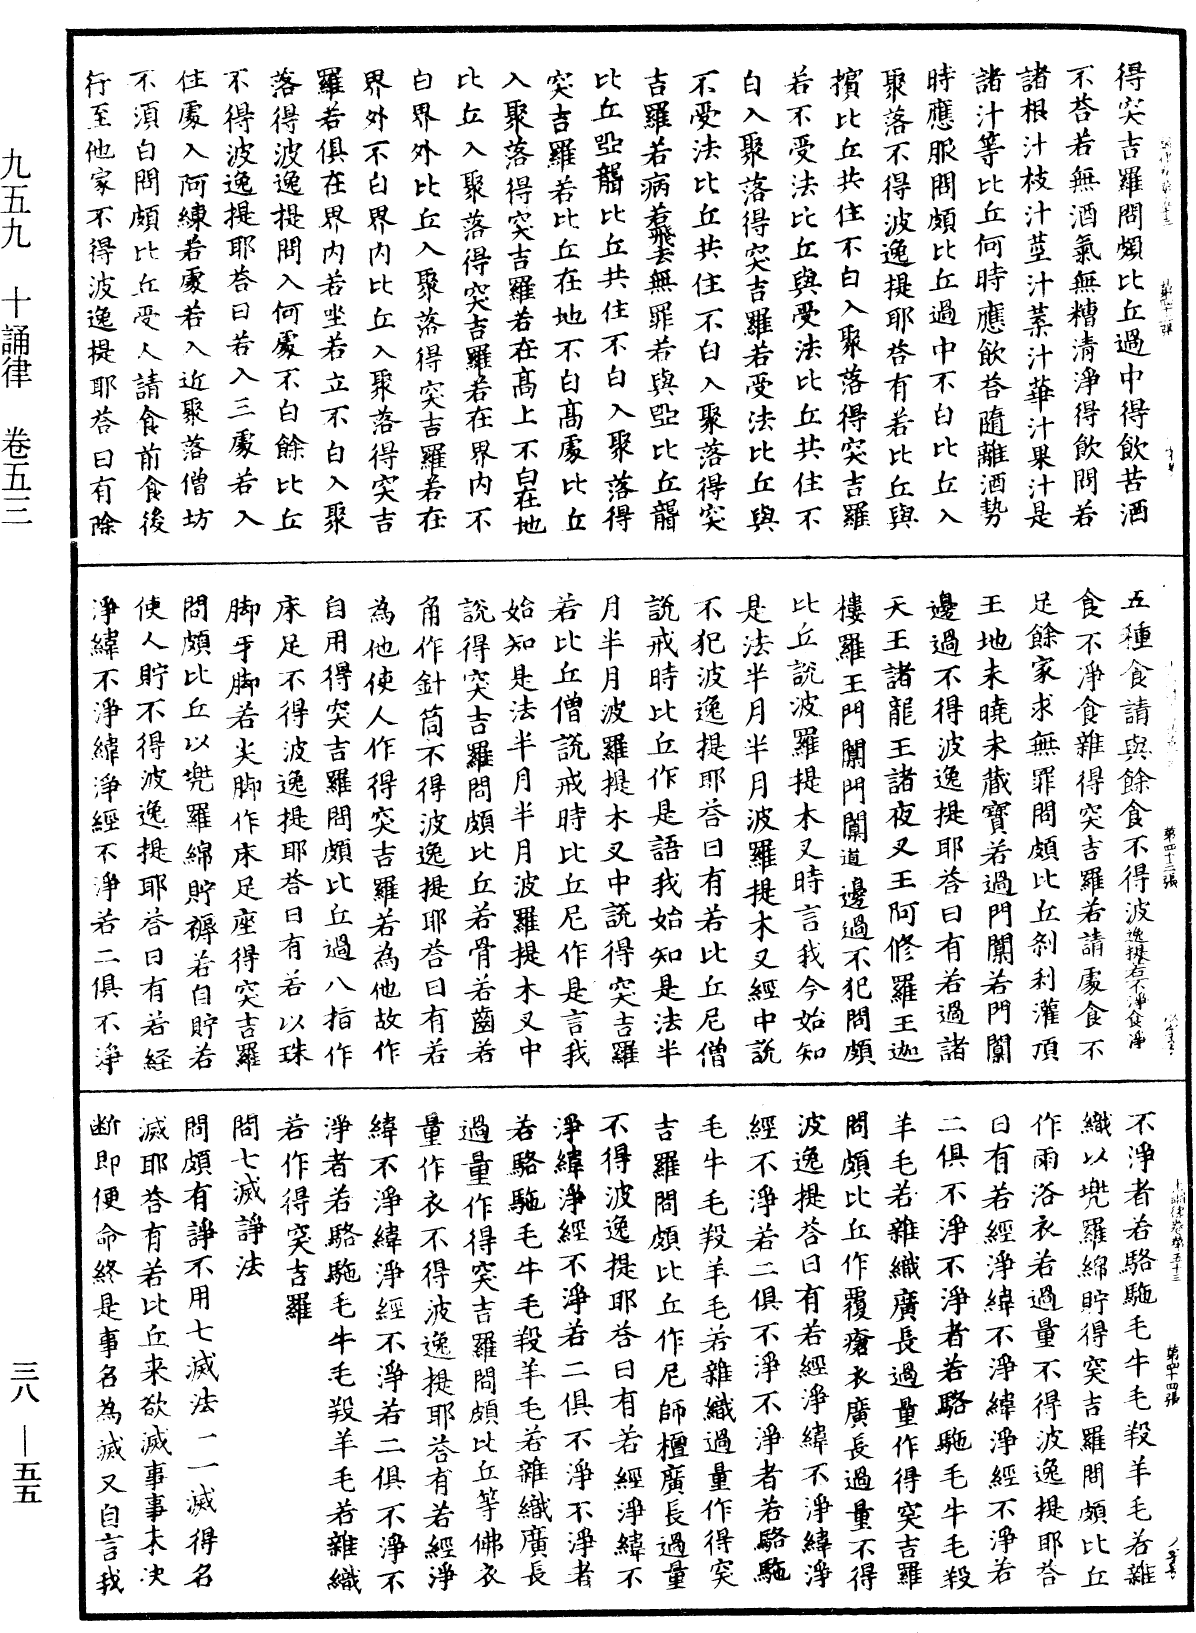 得突吉羅問頗比丘過中得飲苦酒
不荅若無酒氣無糟清淨得飲問若
諸根汁枝汁莖汁葉汁華汁果汁是
諸汁等比丘何時應飲荅隨離酒勢
時應服問頗比丘過中不白比丘入
聚落不得波逸提耶荅有若比丘與
擯比丘共住不白入聚落得突吉羅
若不受法比丘與受法比丘共住不
白入聚落得突吉羅若受法比丘與
不受法比丘共住不白入聚落得突
吉羅若病若飛去無罪若與啞比丘聾
比丘啞聾比丘共住不白入聚落得
突吉羅若比丘在地不白高處比丘
入聚落得突吉羅若在高上不白在地
比丘入聚落得突吉羅若在界內不
白界外比丘入聚落得突吉羅若在
界外不白界內比丘入聚落得突吉
羅若俱在界內若坐若立不白入聚
落得波逸提問入何處不白餘比丘
不得波逸提耶荅曰若入三處若入
住處入阿練若處若入近聚落僧坊
不須白問頗比丘受人請食前食後
行至他家不得波逸提耶荅曰有除
五種食請與餘食不得波逸提若不淨食淨
食不淨食雜得突吉羅若請處食不
足餘家求無罪問頗比丘剎利灌頂
王地未曉未藏寶若過門閫若門閫
邊過不得波逸提耶荅曰有若過諸
天王諸龍王諸夜叉王阿修羅王迦
樓羅王門閫門閫道邊過不犯問頗
比丘說波羅提木叉時言我今始知
是法半月半月波羅提木叉經中說
不犯波逸提耶荅曰有若比丘尼僧
說戒時比丘作是語我始知是法半
月半月波羅提木叉中說得突吉羅
若比丘僧說戒時比丘尼作是言我
始知是法半月半月波羅提木叉中
說得突吉羅問頗比丘若骨若齒若
角作針筒不得波逸提耶荅曰有若
為他使人作得突吉羅若為他故作
自用得突吉羅問頗比丘過八指作
床足不得波逸提耶荅曰有若以珠
脚牙脚若尖脚作床足座得突吉羅
問頗比丘以兜羅綿貯褥若自貯若
使人貯不得波逸提耶荅曰有若經
淨緯不淨緯淨經不淨若二俱不淨
不淨者若駱駞毛牛毛羖羊毛若雜
織以兜羅綿貯得突吉羅問頗比丘
作雨浴衣若過量不得波逸提耶荅
曰有若經淨緯不淨緯淨經不淨若
二俱不淨不淨者若駱駞毛牛毛羖
羊毛若雜織廣長過量作得突吉羅
問頗比丘作覆瘡衣廣長過量不得
波逸提荅曰有若經淨緯不淨緯淨
經不淨若二俱不淨不淨者若駱駞
毛牛毛羖羊毛若雜織過量作得突
吉羅問頗比丘作尼師檀廣長過量
不得波逸提耶荅曰有若經淨緯不
淨緯淨經不淨若二俱不淨不淨者
若駱駞毛牛毛羖羊毛若雜織廣長
過量作得突吉羅問頗比丘等佛衣
量作衣不得波逸提耶荅有若經淨
緯不淨緯淨經不淨若二俱不淨不
淨者若駱駞毛牛毛羖羊毛若雜織
若作得突吉羅
問七滅諍法
問頗有諍不用七滅法一一滅得名
滅耶荅有若比丘来欲滅事事未決
断即便命終是事名為滅又自言我
九五九 十誦律 卷五三
三八 — 五五
第四十三張
第四十四張